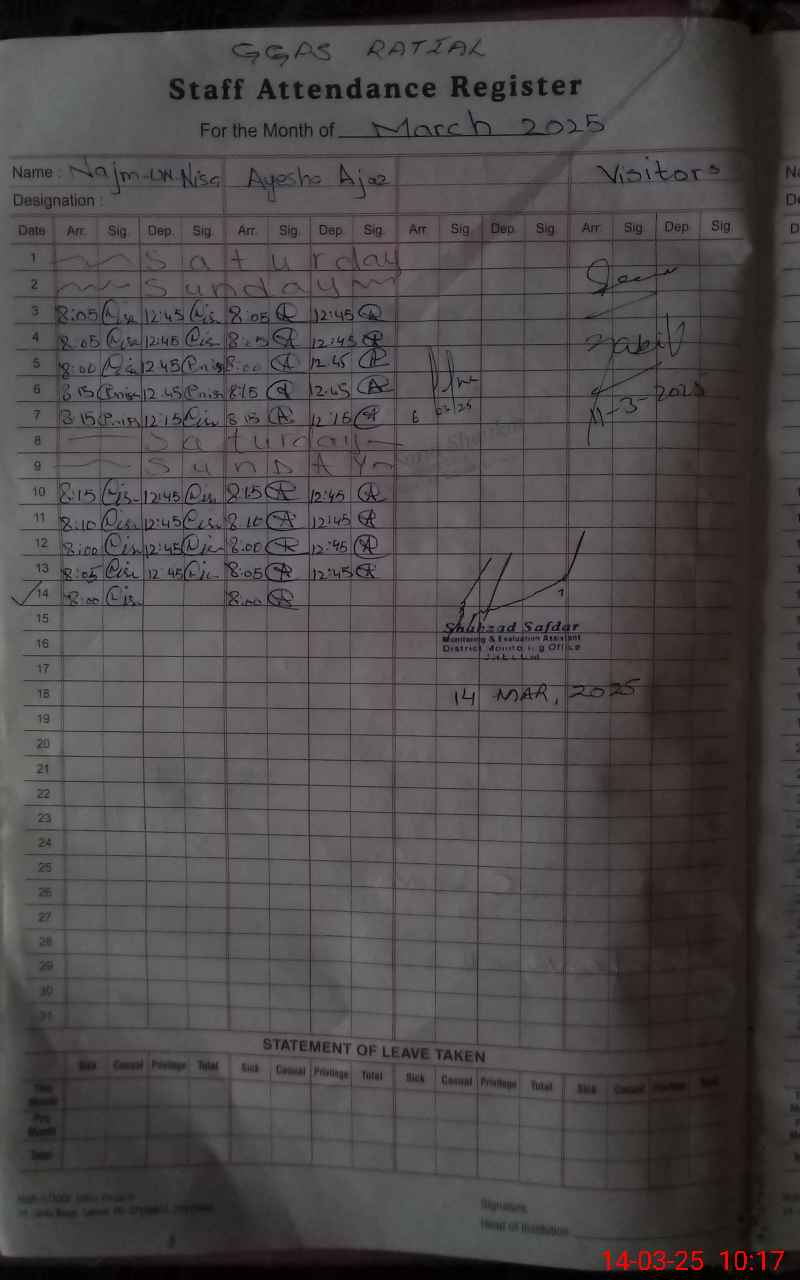 GGAS RATIAL
Staff Attendance Register
For the Month of March 2025
Name : Najm-UN.Nisa Ayesha Ajaz Visitors
Designation :
Date Arr. Sig. Dep. Sig. Arr. Sig. Dep. Sig. Arr. Sig. Dep. Sig. Arr. Sig. Dep. Sig.
1 Saturday
2 Sunday
3 8:05 12:45 8:05 12:45
4 8:05 12:45 8:05 12:45
5 8:00 12.45 8:00 12.45
6 8:15 12.45 8:15 12.45
7 8:15 12:15 8:15 12:15 6 03/25
11-3-2025
8 Saturday
9 SunDAY
10 8:15 12:45 8:15 12:45
11 8:10 12:45 8:10 12:45
12 8:00 12:45 8:00 12:45
13 8:05 12:45 8:05 12:45
14 8:00 8:00
15
Shahzad Safdar
16 Monitoring & Evaluation Assistant
District Monitoring Office
17
18 14 MAR, 2025
19
20
21
22
23
24
25
26
27
28
29
30
31
STATEMENT OF LEAVE TAKEN
Sick Casual Privilege Total Sick Casual Privilege Total Sick Casual Privilege Total Sick Casual Privilege
Total
Signature
Head of Institution
14-03-25 10:17